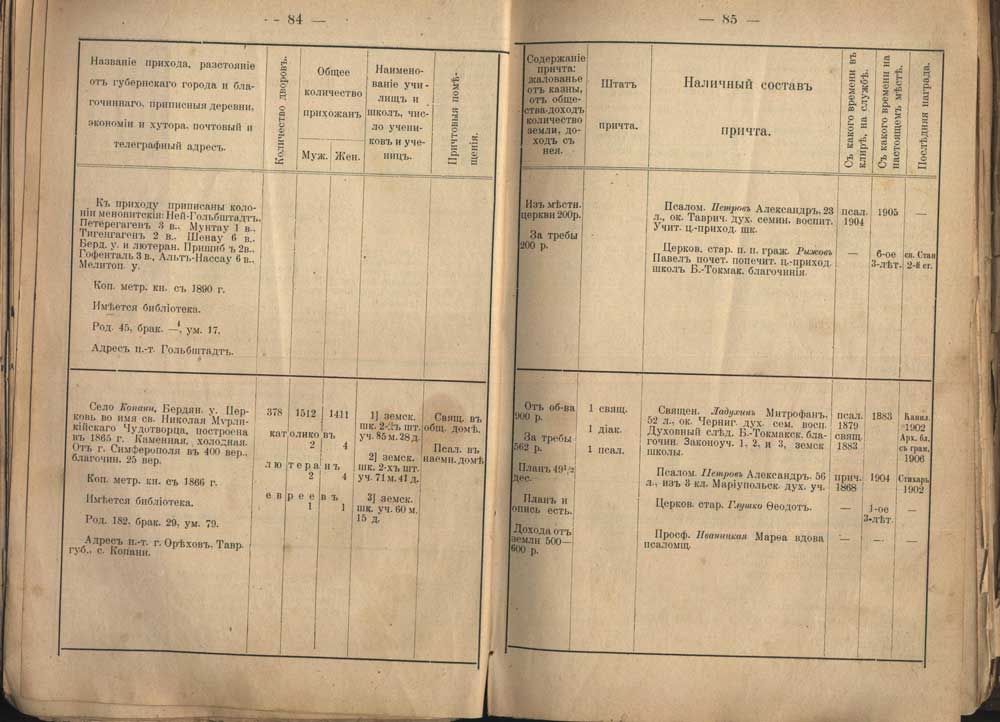 — 84 —
Названіе прихода, разстояніе
отъ губернскаго города и бла-
гочиннаго, приписныя деревни,
экономіи и хутора, почтовый и
телеграфный адресъ.
Количество дворовъ.
Общее
количество
прихожанъ
Муж.
Жен.
Наимено-
ваніе учи-
лищъ и
школъ, чис-
ло учени-
ковъ и уче-
ницъ.
Причтовыя помѣ-
щенія.
Къ приходу приписаны коло-
ніи менонитскія: Ней-Гольбштадтъ,
Петерсгагенъ 3 в., Мунтау 1 в.,
Тигенгагенъ 2 в., Шенау 6 в.,
Берд. у. и лютеран. Пришибъ 2в.,
Гофенталь 3 в., Альтъ-Нассау 6 в.,
Мелитоп. у.
Коп. метр. кн. съ 1890 г.
Имѣется библіотека.
Род. 45, брак. —, ум. 17.
Адресъ п.-т. Гольбштадтъ.
Село Копани, Бердян. у. Цер-
ковь во имя св. Николая Мурли-
кійскаго Чудотворца, построена
въ 1865 г. Каменная, холодная.
Отъ г. Симферополя въ 400 вер.,
благочин. 25 вер.
Коп. метр. кн. съ 1866 г.
Имѣется библіотека.
Род. 182, брак. 29, ум. 79.
Адресъ п.-т. г. Орѣховъ, Тавр.
губ., с. Копани.
378 1512 1411
католиковъ
2 4
лютеранъ
2 4
евреевъ
1 1
1] земск.
шк. 2-хъ шт.
уч. 85 м. 28 д.
2] земск.
шк. 2-хъ шт.
уч. 71 м. 41 д.
3] земск.
шк. уч. 60 м.
15 д.
Свящ. въ
общ. домѣ,
Псал. въ
наемн. домѣ
— 85 —
Содержаніе
причта:
жалованье
отъ казны,
отъ обще-
ства:доходъ
количество
земли, до-
ходъ съ
нея.
Штатъ
причта.
Наличный составъ
причта.
Съ какого времени въ
клирѣ, на службѣ.
Съ какого времени на
настоящемъ мѣстѣ.
Послѣдняя награда.
Изъ мѣстн.
церкви 200р.
За требы
200 р.
Псалом. Петровъ Александръ, 23
л., ок. Таврич. дух. семин. воспит.
Учит. ц.-приход. шк.
псал.
1904
1905
—
Церков. стар. п. п. граж. Рыжовъ
Павелъ почет. попечит. ц.-приход.
школъ Б.-Токмак. благочинія.
—
6-ое
3-лѣт.
св. Стан
2-й ст.
Отъ об-ва
900 р.
За требы
562 р.
Планъ 49½
дес.
Планъ и
опись есть.
Дохода отъ
земли 500—
600 р.
1 свящ.
1 діак.
1 псал.
Священ. Ладухинъ Митрофанъ,
52 л., ок. Черниг. дух. сем. восп.
Духовный слѣд. Б.-Токмакск. бла-
гочин. Законоуч. 1, 2, и 3, земск
школы.
псал.
1879
свящ.
1883
1883
Камил.
1902
Арх. бл.
съ грам.
1906
Псалом. Петровъ Александръ. 56
л., изъ 3 кл. Маріупольск. дух. уч.
прич.
1868
1904
Стихарь
1902
Церков. стар. Глушко Ѳеодотъ.
—
1-ое
3-лѣт.
—
Просф. Иваницкая Марѳа вдова
псаломщ.
—
—
—